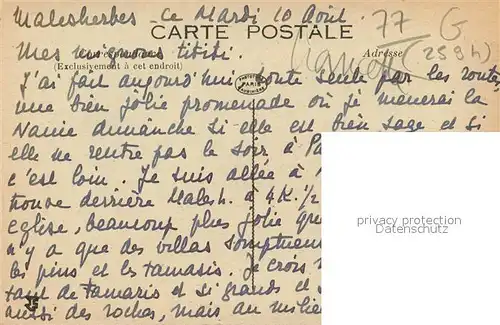 Malesherbes - Ce Mardi 10 Août. 77 G
CARTE POSTALE
Mes mignonnes tititi (259h)
Correspondance Adresse
(Exclusivement à cet endroit)
J'ai fait aujourd'hui toute seule par les routes
une bien jolie promenade où je mènerai la
PARIS
Nanie dimanche si elle est bien sage et si
elle ne rentre pas le soir à Pa
c'est loin. Je suis allée à
trouve derrière Malesh. à 4K. 1/2
église, beaucoup plus jolie que
n'y a que des villas somptueu
les pins et les tamaris. Je crois
tant de tamaris et si grands et s
aussi des roches, mais au milieu
privacy protection
Datenschutz